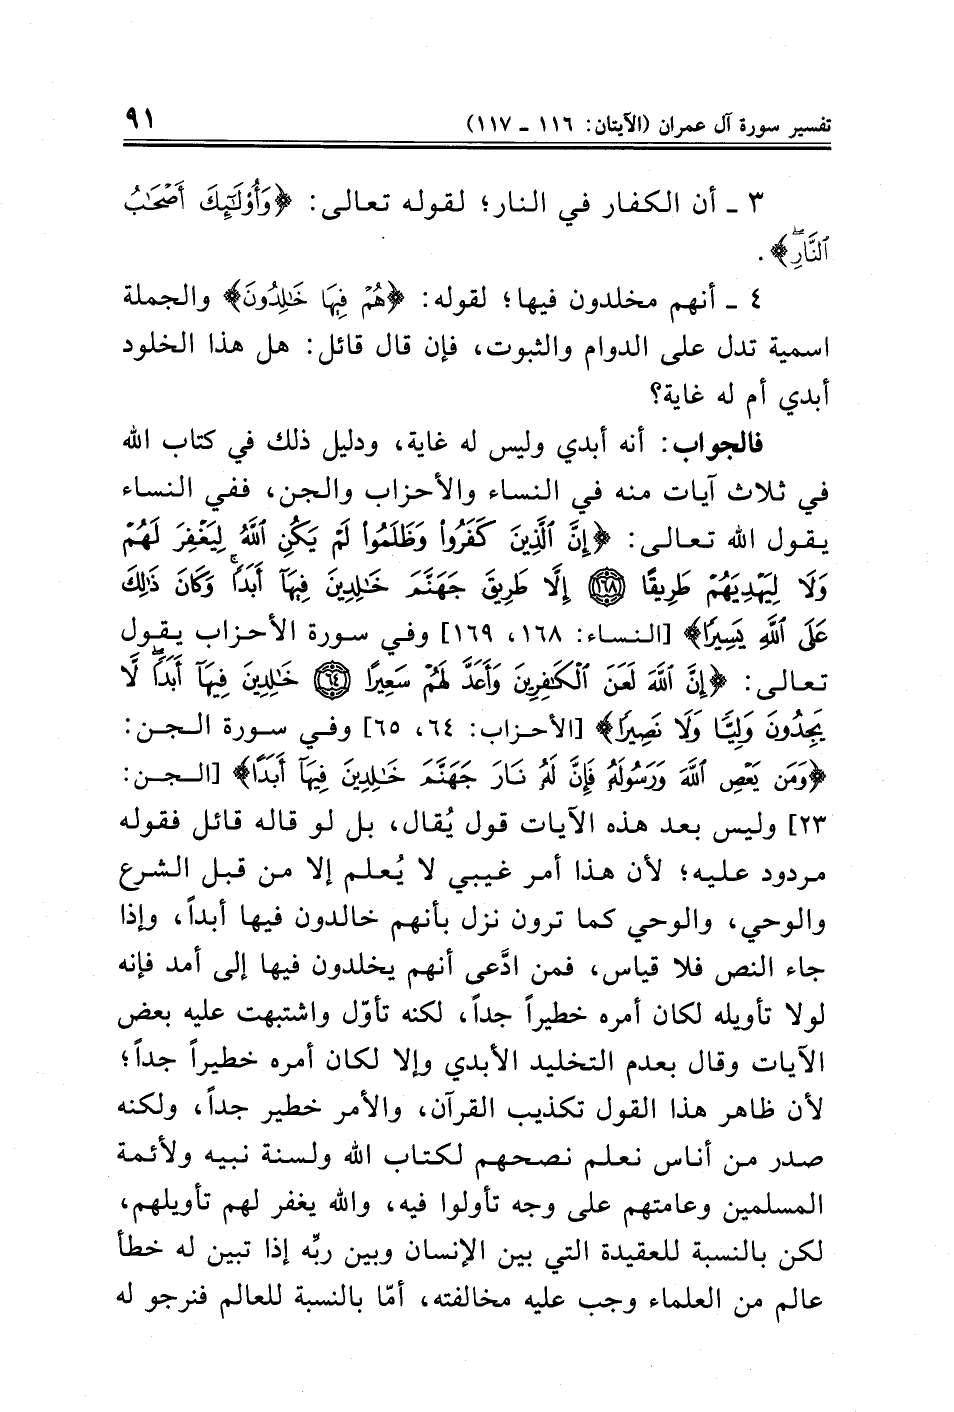 تفسير سورة آل عمران (الآيتان: ١١٦ ـ ١١٧)
٩١
٣ ـ أن الكفار في النار؛ لقوله تعالى: ﴿وَأُوْلَٰٓئِكَ أَصْحَٰبُ
ٱلنَّارِۖ﴾.
٤ ـ أنهم مخلدون فيها؛ لقوله: ﴿هُمْ فِيهَا خَٰلِدُونَ﴾ والجملة
اسمية تدل على الدوام والثبوت، فإن قال قائل: هل هذا الخلود
أبدي أم له غاية؟
فالجواب: أنه أبدي وليس له غاية، ودليل ذلك في كتاب الله
في ثلاث آيات منه في النساء والأحزاب والجن، ففي النساء
يقول الله تعالى: ﴿إِنَّ ٱلَّذِينَ كَفَرُواْ وَظَلَمُواْ لَمْ يَكُنِ ٱللَّهُ لِيَغْفِرَ لَهُمْ
وَلَا لِيَهْدِيَهُمْ طَرِيقًا ١٦٨ إِلَّا طَرِيقَ جَهَنَّمَ خَٰلِدِينَ فِيهَآ أَبَدًاۚ وَكَانَ ذَٰلِكَ
عَلَى ٱللَّهِ يَسِيرًا﴾ [النساء: ١٦٨، ١٦٩] وفي سورة الأحزاب يقول
تعالى: ﴿إِنَّ ٱللَّهَ لَعَنَ ٱلْكَٰفِرِينَ وَأَعَدَّ لَهُمْ سَعِيرًا ٦٤ خَٰلِدِينَ فِيهَآ أَبَدًاۖ لَّا
يَجِدُونَ وَلِيًّا وَلَا نَصِيرًا﴾ [الأحزاب: ٦٤، ٦٥] وفي سورة الجن:
﴿وَمَن يَعْصِ ٱللَّهَ وَرَسُولَهُۥ فَإِنَّ لَهُۥ نَارَ جَهَنَّمَ خَٰلِدِينَ فِيهَآ أَبَدًا﴾ [الجن:
٢٣] وليس بعد هذه الآيات قول يُقال، بل لو قاله قائل فقوله
مردود عليه؛ لأن هذا أمر غيبي لا يُعلم إلا من قبل الشرع
والوحي، والوحي كما ترون نزل بأنهم خالدون فيها أبداً، وإذا
جاء النص فلا قياس، فمن ادَّعى أنهم يخلدون فيها إلى أمد فإنه
لولا تأويله لكان أمره خطيراً جداً، لكنه تأوّل واشتبهت عليه بعض
الآيات وقال بعدم التخليد الأبدي وإلا لكان أمره خطيراً جداً؛
لأن ظاهر هذا القول تكذيب القرآن، والأمر خطير جداً، ولكنه
صدر من أناس نعلم نصحهم لكتاب الله ولسنة نبيه ولأئمة
المسلمين وعامتهم على وجه تأولوا فيه، والله يغفر لهم تأويلهم،
لكن بالنسبة للعقيدة التي بين الإنسان وبين ربِّه إذا تبين له خطأ
عالم من العلماء وجب عليه مخالفته، أمّا بالنسبة للعالم فنرجو له